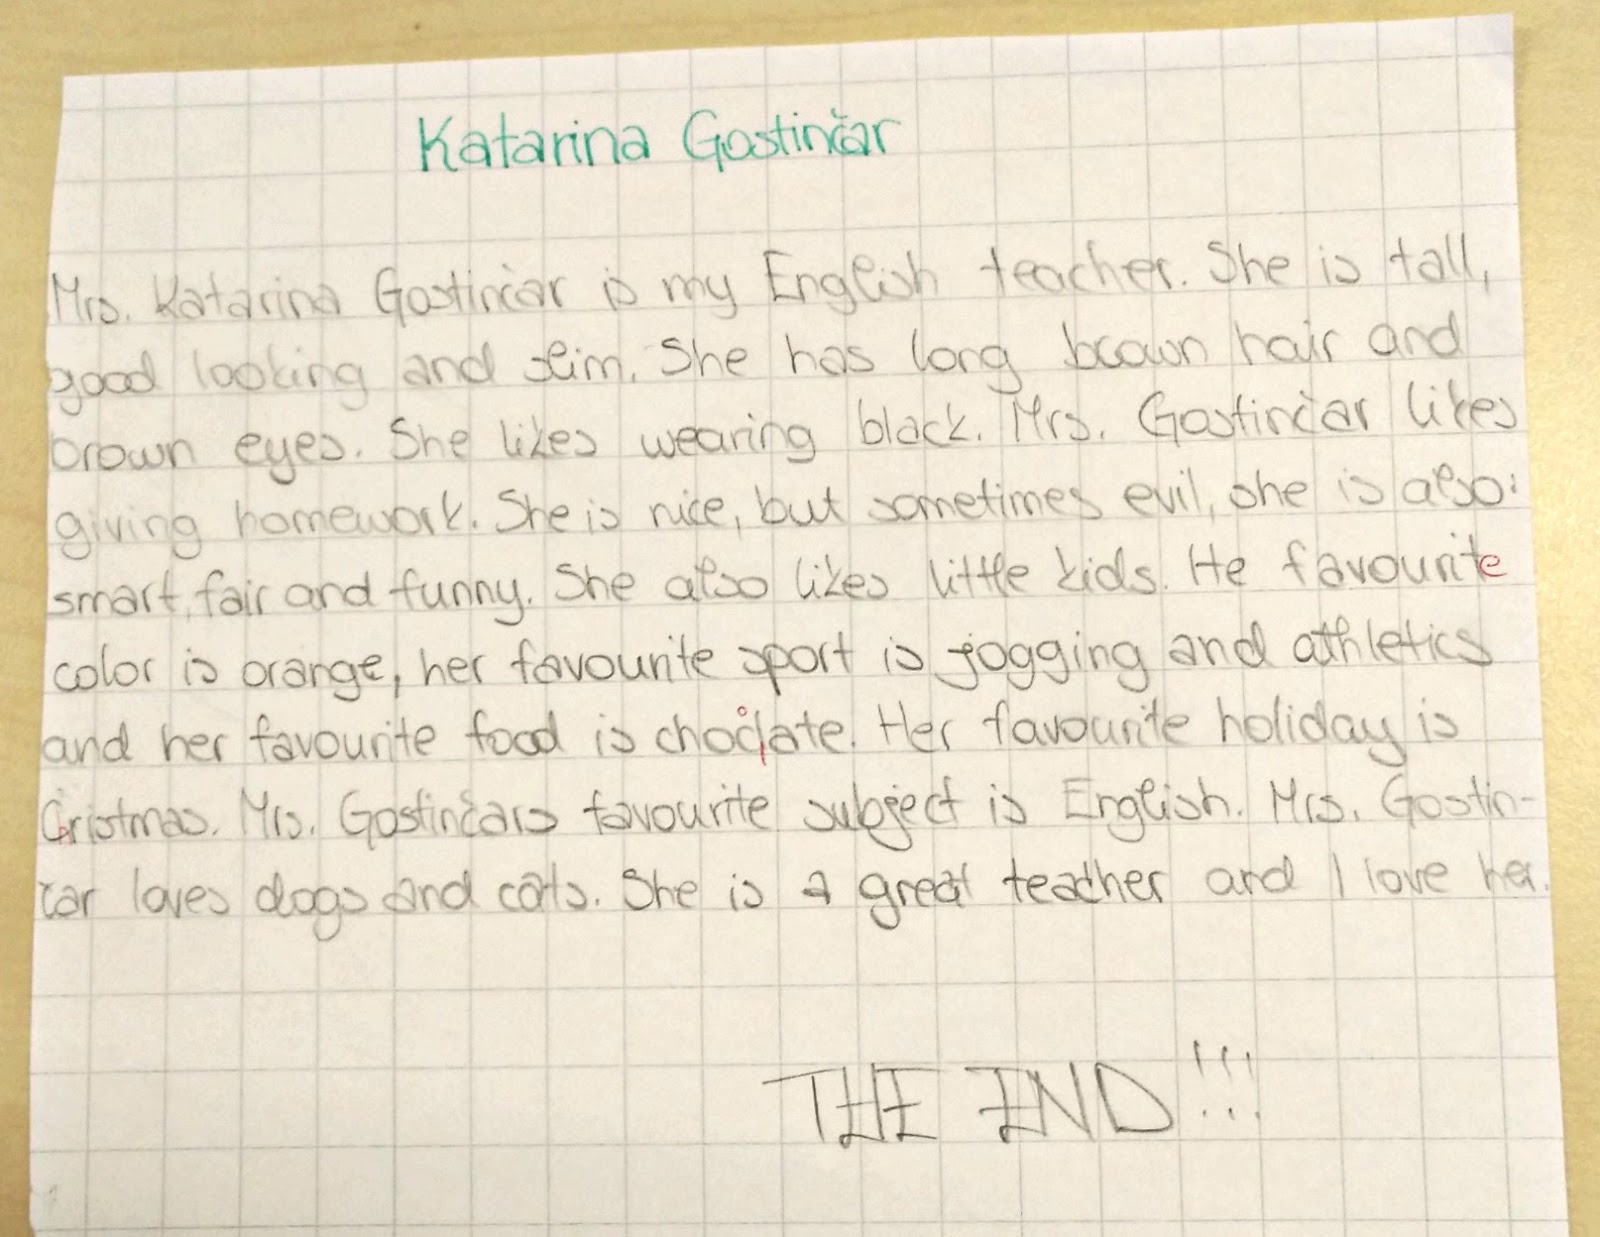 Katarina Gostinčar
Mrs. Katarina Gostinčar is my English teacher. She is tall,
good looking and slim. She has long brown hair and
brown eyes. She likes wearing black. Mrs. Gostinčar likes
giving homework. She is nice, but sometimes evil, she is also:
smart, fair and funny. She also likes little kids. He favourite
color is orange, her favourite sport is jogging and athletics
and her favourite food is chocolate. Her favourite holiday is
Christmas. Mrs. Gostinčars favourite subject is English. Mrs. Gostin-
čar loves dogs and cats. She is a great teacher and I love her.
THE END!!!